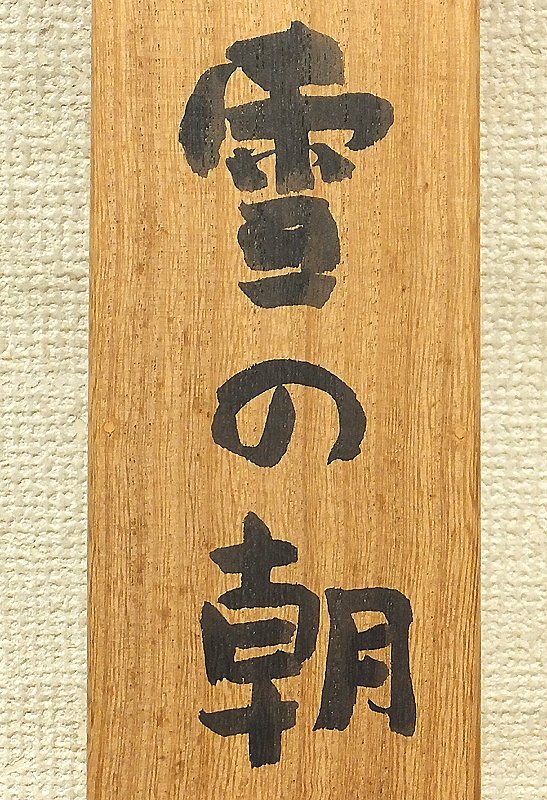 雪の朝